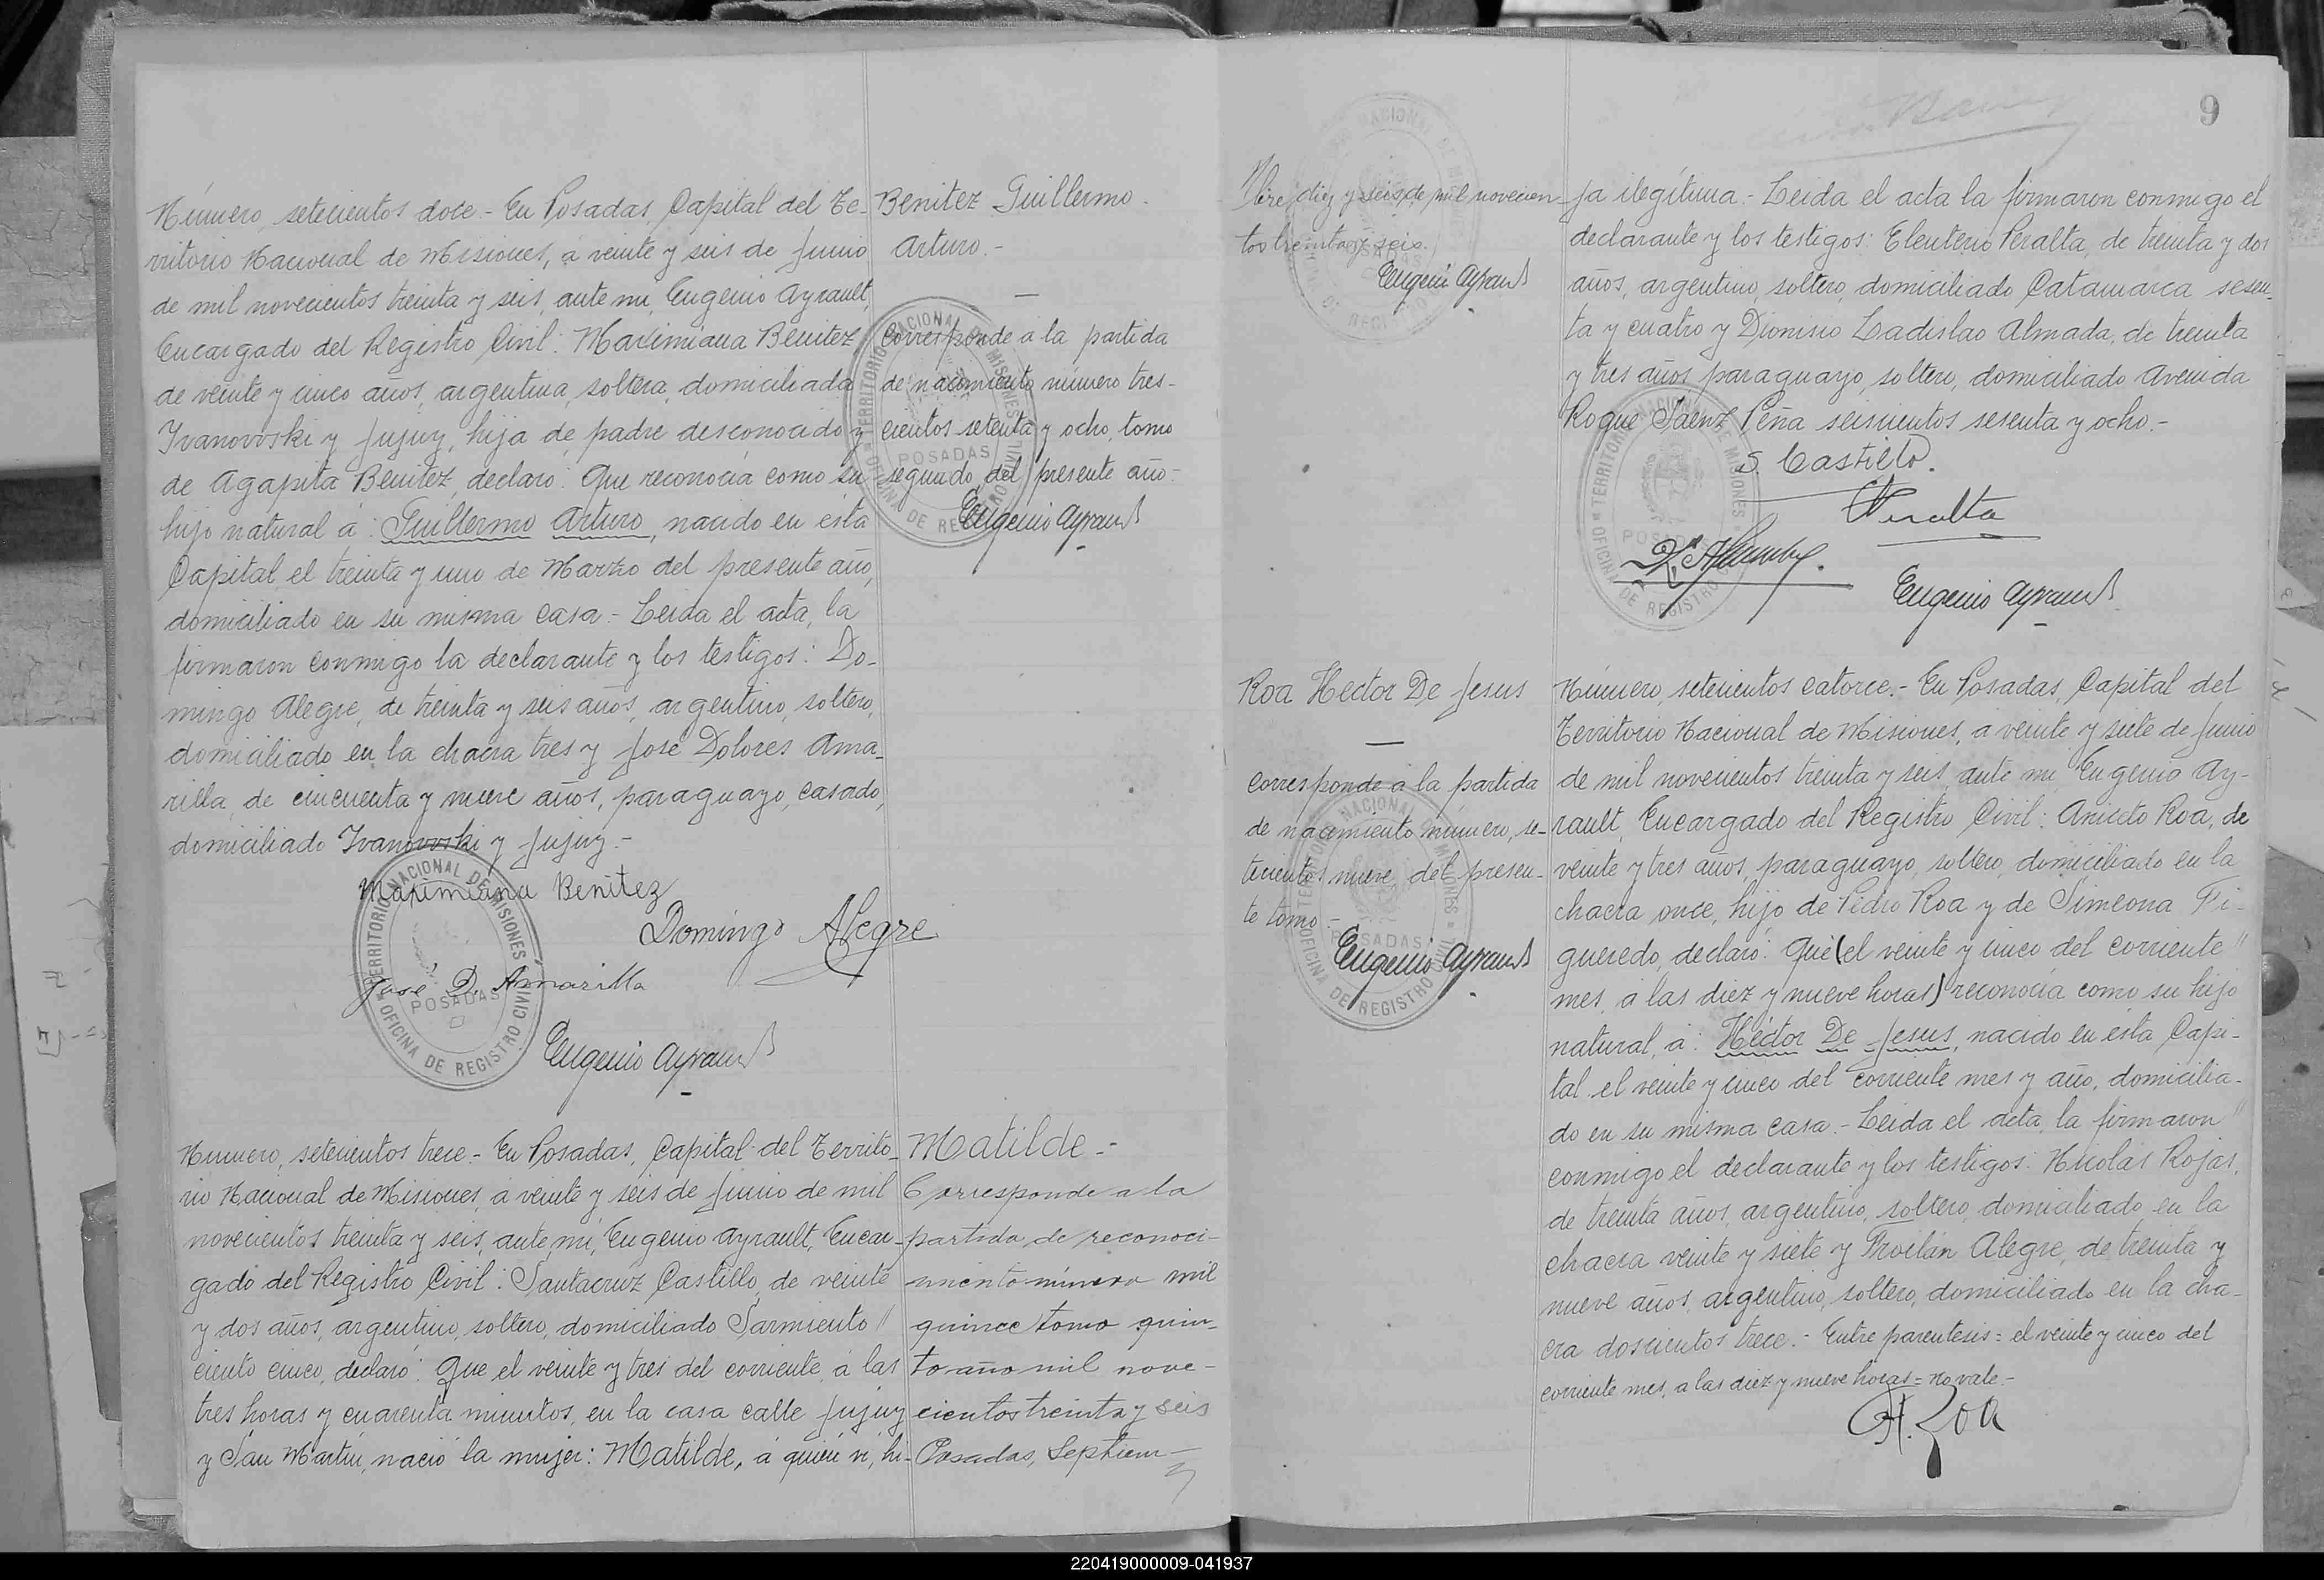 Número, setecientos doce.- En Posadas, Capital del Te-
rritorio Nacional de Misiones, a veinte y seis de Junio
de mil novecientos treinta y seis, ante mi, Eugenio Ayrault,
Encargado del Registro Civil: Maximiana Benitez,
de veinte y cinco años, argentina, soltera, domiciliada
Ivanovoski y Jujuy, hija de padre desconocido y
de Agapita Benitez, declaró: Que reconocía como su
hijo natural á: Guillermo Arturo, nacido en esta
Capital, el treinta y uno de Marzo del presente año,
domiciliado en su misma casa.- Leida el acta, la
firmaron conmigo la declarante y los testigos: Do-
mingo Alegre, de treinta y seis años, argentino, soltero,
domiciliado en la chacra tres y José Dolores Ama-
rilla, de cincuenta y nueve años, paraguayo, casado,
domiciliado Ivanovoski y Jujuy.-
Maximiana Benitez
Domingo Alegre
José D. Amarilla
Eugenio Ayrault
Benitez Guillermo
Arturo.-
Corresponde a la partida
de nacimiento número tres-
cientos setenta y ocho, tomo
segundo del presente año.-
Eugenio Ayrault
TERRITORIO NACIONAL DE MISIONES
POSADAS
OFICINA DE REGISTRO CIVIL
Número, setecientos trece.- En Posadas, Capital del Territo-
rio Nacional de Misiones, a veinte y seis de Junio de mil
novecientos treinta y seis, ante mi, Eugenio Ayrault, Encar-
gado del Registro Civil: Santacruz Castillo, de veinte
y dos años, argentino, soltero, domiciliado Sarmiento //
ciento cinco, declaró: Que el veinte y tres del corriente á las
tres horas y cuarenta minutos, en la casa calle Jujuy
y San Martin, nació la mujer: Matilde, á quién vi, hi-
Matilde.-
Corresponde a la
partida de reconoci-
miento número mil
quince tomo quin-
to año mil nove-
cientos treinta y seis
Posadas, Septiem-
9
bre, diez y seis, de mil novecien-
tos treinta y seis.
Eugenio Ayrault
ja ilegítima.- Leida el acta la firmaron conmigo el
declarante y los testigos: Eleuterio Peralta, de treinta y dos
años, argentino, soltero, domiciliado Catamarca sesen-
ta y cuatro y Dionisio Ladislao Almada, de treinta
y tres años, paraguayo, soltero, domiciliado Avenida
Roque Saenz Peña seiscientos sesenta y ocho.-
S. Castillo.
Peralta
Eugenio Ayrault
Roa Hector De Jesus
Corresponde a la partida
de nacimiento número, se-
tecientos nueve, del presen-
te tomo.-
Eugenio Ayrault
Número, setecientos catorce.- En Posadas, Capital del
Territorio Nacional de Misiones, a veinte y siete de Junio
de mil novecientos treinta y seis, ante mi, Eugenio Ay-
rault, Encargado del Registro Civil: Aniceto Roa, de
veinte y tres años, paraguayo, soltero, domiciliado en la
chacra once, hijo de Pedro Roa y de Simeona Fi-
gueredo, declaró: Que (el veinte y cinco del corriente //
mes, a las diez y nueve horas) reconocía como su hijo
natural, á: Héctor De Jesus, nacido en esta Capi-
tal el veinte y cinco del corriente mes y año, domicilia-
do en su misma casa.- Leida el acta, la firmaron //
conmigo el declarante y los testigos: Nicolás Rojas,
de treinta años, argentino, soltero, domiciliado en la
chacra veinte y siete y Froilán Alegre, de treinta y
nueve años, argentino, soltero, domiciliado en la cha-
cra doscientos trece.- Entre parentesis = el veinte y cinco del
corriente mes, a las diez y nueve horas = no vale.-
A. Roa
220419000009-041937